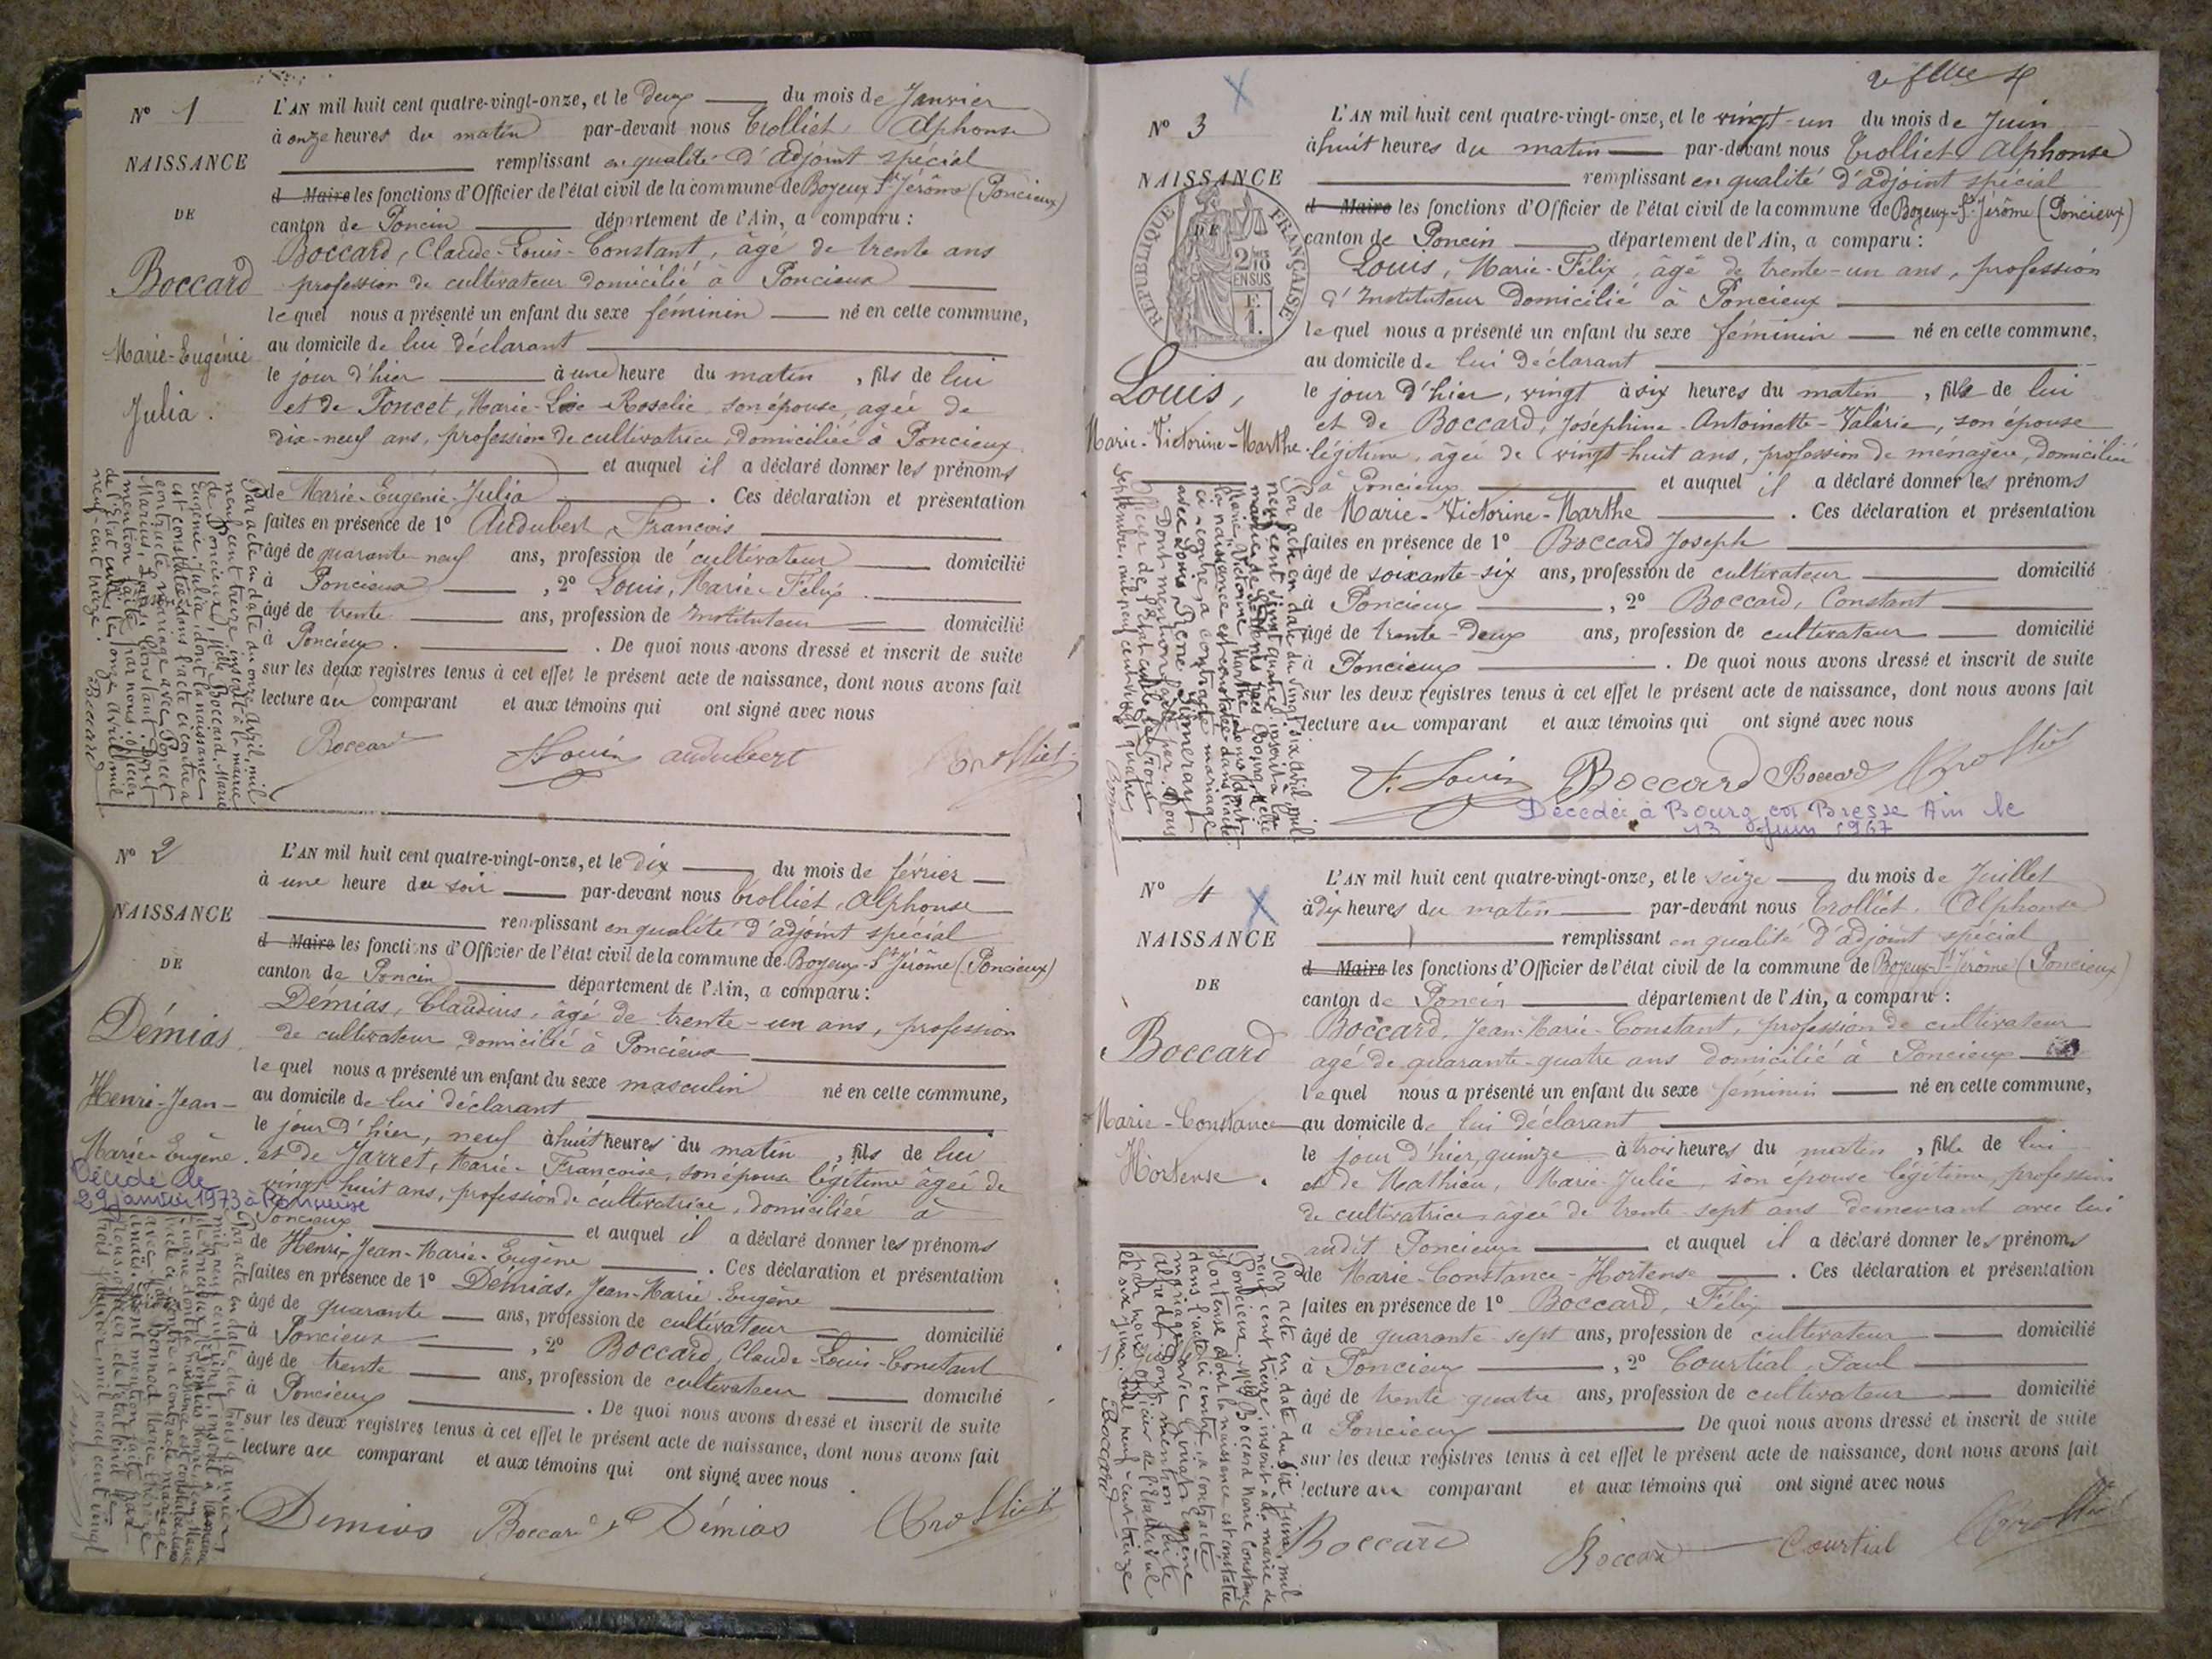 N° 1
NAISSANCE
DE
Boccard
Marie-Eugénie
Julia.
L'AN mil huit cent quatre-vingt-onze, et le Deux du mois de Janvier
à onze heures du matin par-devant nous Trolliet, Alphonse
remplissant en qualité d'adjoint spécial
d Maire les fonctions d'Officier de l'état civil de la commune de Boyeux St Jérôme (Poncieux)
canton de Poncin département de l'Ain, a comparu :
Boccard, Claude-Louis-Constant, âgé de trente ans
profession de cultivateur domicilié à Poncieux
lequel nous a présenté un enfant du sexe féminin né en cette commune,
au domicile de lui déclarant
le jour d'hier à une heure du matin, fils de lui
et de Poncet, Marie- Roselie, son épouse, agée de
dix-neuf ans, profession de cultivatrice, domiciliée à Poncieux
et auquel il a déclaré donner les prénoms
de Marie-Eugénie-Julia. Ces déclaration et présentation
faites en présence de 1° Audubert, François
âgé de quarante neuf ans, profession de cultivateur domicilié
à Poncieux, 2° Louis, Marie-Félix
âgé de trente ans, profession de Instituteur domicilié
à Poncieux. De quoi nous avons dressé et inscrit de suite
sur les deux registres tenus à cet effet le présent acte de naissance, dont nous avons fait
lecture au comparant et aux témoins qui ont signé avec nous
Boccard Louis audubert Trolliet
Par acte en date du onze avril, mil
neuf cent treize, inscrit à la mairie
de Poncieux, Melle Boccard, Marie
Eugénie, Julia, dont la naissance
est constatée dans l'acte ci contre a
contracté mariage avec Poncet
Marius, Louis, Constant. Dont
mention faite par nous, officier
de l'Etat civil le onze avril mil
neuf-cent treize. Boccard
N° 2
NAISSANCE
DE
Démias
Henri-Jean-
Marie-Eugène.
Décédé le
29 janvier 1973 à
L'AN mil huit cent quatre-vingt-onze, et le Dix du mois de février
à une heure du soir par-devant nous Trolliet, Alphonse
remplissant en qualité d'adjoint spécial
d Maire les fonctions d'Officier de l'état civil de la commune de Boyeux-St Jérôme (Poncieux)
canton de Poncin département de l'Ain, a comparu :
Démias, Claudius, âgé de trente-un ans, profession
de cultivateur domicilié à Poncieux
lequel nous a présenté un enfant du sexe masculin né en cette commune,
au domicile de lui déclarant
le jour d'hier, neuf à huit heures du matin, fils de lui
et de Jarret, Marie-Françoise, son épouse légitime âgée de
vingt huit ans, profession de cultivatrice, domiciliée à
Poncieux et auquel il a déclaré donner les prénoms
de Henri-Jean-Marie-Eugène. Ces déclaration et présentation
faites en présence de 1° Démias, Jean-Marie Eugène
âgé de quarante ans, profession de cultivateur domicilié
à Poncieux, 2° Boccard, Claude-Louis-Constant
âgé de trente ans, profession de cultivateur domicilié
à Poncieux. De quoi nous avons dressé et inscrit de suite
sur les deux registres tenus à cet effet le présent acte de naissance, dont nous avons fait
lecture au comparant et aux témoins qui ont signé avec nous.
Demias Boccard Démias Trolliet
N° 3
NAISSANCE
DE
RÉPUBLIQUE FRANÇAISE
Louis,
Marie-Victorine-Marthe
L'AN mil huit cent quatre-vingt-onze, et le vingt-un du mois de Juin
à huit heures du matin par-devant nous Trolliet, Alphonse
remplissant en qualité d'adjoint spécial
d Maire les fonctions d'Officier de l'état civil de la commune de Boyeux-St Jérôme (Poncieux)
canton de Poncin département de l'Ain, a comparu :
Louis, Marie-Félix, âgé de trente-un ans, profession
d'Instituteur Domicilié à Poncieux
lequel nous a présenté un enfant du sexe féminin né en cette commune,
au domicile de lui déclarant
le jour d'hier, vingt à six heures du matin, fille de lui
et de Boccard, Joséphine-Antoinette-Valérie, son épouse
légitime, âgée de vingt huit ans, profession de ménagère, Domiciliée
à Poncieux et auquel il a déclaré donner les prénoms
de Marie-Victorine-Marthe. Ces déclaration et présentation
faites en présence de 1° Boccard Joseph
âgé de soixante-six ans, profession de cultivateur domicilié
à Poncieux, 2° Boccard, Constant
âgé de trente-Deux ans, profession de cultivateur domicilié
à Poncieux. De quoi nous avons dressé et inscrit de suite
sur les deux registres tenus à cet effet le présent acte de naissance, dont nous avons fait
lecture au comparant et aux témoins qui ont signé avec nous
F. Louis Boccard Boccard Trolliet
Décédée à Bourg en Bresse Ain le
13 Juin 1967
N° 4
NAISSANCE
DE
Boccard
Marie-Constance
Hortense.
L'AN mil huit cent quatre-vingt-onze, et le seize du mois de Juillet
à dix heures du matin par-devant nous Trolliet, Alphonse
remplissant en qualité d'adjoint spécial
d Maire les fonctions d'Officier de l'état civil de la commune de Boyeux-St Jérôme (Poncieux)
canton de Poncin département de l'Ain, a comparu :
Boccard, Jean-Marie-Constant, profession de cultivateur
agé de quarante-quatre ans domicilié à Poncieux
lequel nous a présenté un enfant du sexe féminin né en cette commune,
au domicile de lui déclarant
le jour d'hier, quinze à trois heures du matin, fille de lui
et de Mathieu, Marie-Julie, son épouse légitime, profession
de cultivatrice, âgée de trente-sept ans demeurant avec lui
audit Poncieux et auquel il a déclaré donner les prénoms
de Marie-Constance-Hortense. Ces déclaration et présentation
faites en présence de 1° Boccard, Félix
âgé de quarante-sept ans, profession de cultivateur domicilié
à Poncieux, 2° Courtial, Paul
âgé de trente quatre ans, profession de cultivateur domicilié
à Poncieux De quoi nous avons dressé et inscrit de suite
sur les deux registres tenus à cet effet le présent acte de naissance, dont nous avons fait
lecture au comparant et aux témoins qui ont signé avec nous
Boccard Boccard Courtial Trolliet
Par acte en date du six Juin, mil
neuf cent treize, inscrit à la mairie de
Poncieux, Melle Boccard Marie Constance
Hortense dont la naissance est constatée
dans l'acte ci contre, a contracté
mariage avec Eugène
Alfred. Dont mention faite
par nous officier de l'Etat civil
le six Juin, mil neuf-cent treize
Boccard